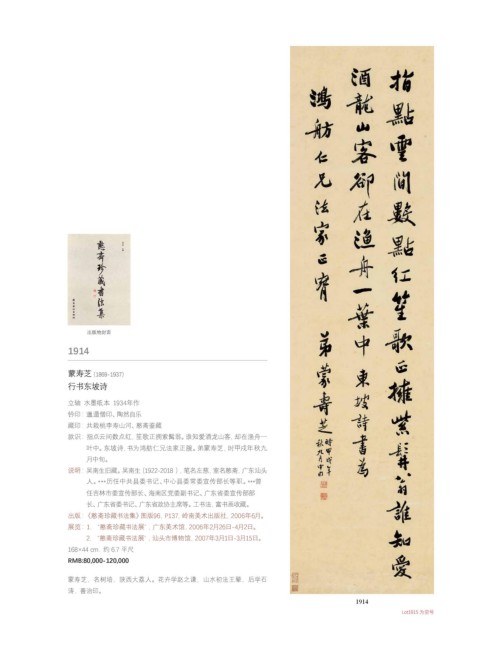 憨斋珍藏书法集
出版物封面
1914
蒙寿芝 (1869-1937)
行书东坡诗
立轴 水墨纸本 1934年作
藏印: 共裁桃李寿山河、憨斋鉴藏
款识: 指点云间数点红, 笙歌正拥紫髯翁。谁知爱酒龙山客, 却在渔舟一
叶中。东坡诗, 书为鸿舫仁兄法家正。弟蒙寿芝, 时甲戌年秋九
月中旬。
说明: 吴南生旧藏。吴南生 (1922-2018), 笔名左慈, 斋名憨斋, 广东汕头
人。***历任中共县委书记、中心县委常委宣传部长等职。***曾
任吉林市委宣传部长、海南区党委副书记、广东省委宣传部部
长、广东省委书记、广东省政协主席等。工书法, 富书画收藏。
出版: 《憨斋珍藏书法集》图版96, P137, 岭南美术出版社, 2006年6月。
展览: 1. “憨斋珍藏书法展”, 广东美术馆, 2006年2月26日-4月2日。
2. “憨斋珍藏书法展”, 汕头市博物馆, 2007年3月1日-3月15日。
168×44 cm. 约 6.7 平尺
RMB:80,000-120,000
蒙寿芝, 名树培, 陕西大荔人。花卉学赵之谦, 山水初法王翚, 后学石
涛, 善治印。
指點雲間數點紅笙歌正擁紫髯翁誰知愛
酒龍山客卻在漁舟一葉中東坡詩書為
鴻舫仁兄法家正
弟蒙壽芝
時甲戌年
秋九月中旬
1914